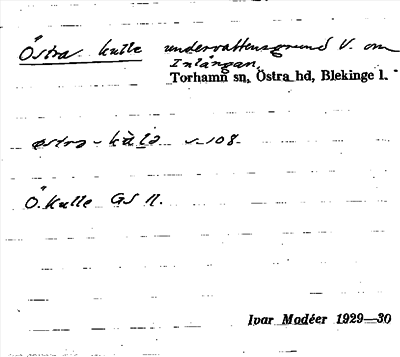 Östra kulle undervattensgrund V. om
Inlångan,
Torhamn sn, Östra hd, Blekinge l.
östra - kùlə
Ö. Kulle GS 11.
Ivar Modéer 1929—30